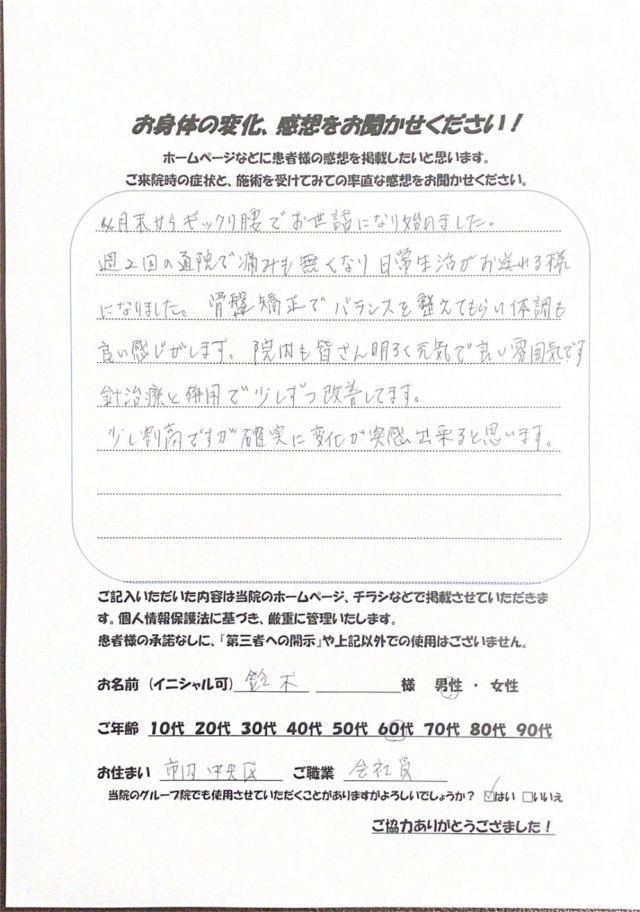 お身体の変化、感想をお聞かせください！
ホームページなどに患者様の感想を掲載したいと思います。
ご来院時の症状と、施術を受けてみての率直な感想をお聞かせください。
4月末からギックリ腰でお世話になり始めました。
週2回の通院で痛みも無くなり日常生活がお送れる様
になりました。骨盤矯正でバランスを整えてもらい体調も
良い感じがします。院内も皆さん明るく元気で良い雰囲気です
針治療と併用で少しずつ改善してます。
少し割高ですが確実に変化が実感出来ると思います。
ご記入いただいた内容は当院のホームページ、チラシなどで掲載させていただきま
す。個人情報保護法に基づき、厳重に管理いたします。
患者様の承諾なしに、「第三者への開示」や上記以外での使用はございません。
お名前（イニシャル可）鈴木 様 男性・女性
ご年齢 10代 20代 30代 40代 50代 60代 70代 80代 90代
お住まい 市内中央区 ご職業 会社員
当院のグループ院でも使用させていただくことがありますがよろしいでしょうか？ ☑はい □いいえ
ご協力ありがとうござました！